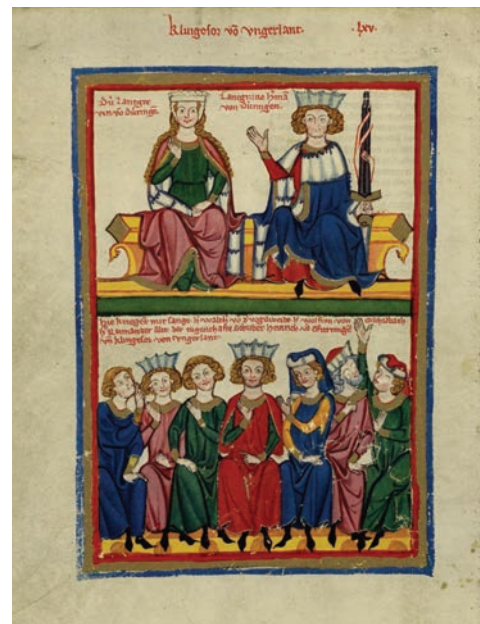 Klingesor võ vngerlant. · lxv·
Dú Lantgre
vin võ Dúringē.
Lantgraue h̾mā
von Dúringen.
Hie kriegent mit sange h̾ walth̾ võ d̾ vogilweide h̾ wolfran von Eschilbach
h̾ Reinmar der alte der tugenthafte schriber Heinrich võ Ofterdingē
vn̄ klingesor von vngerlant.